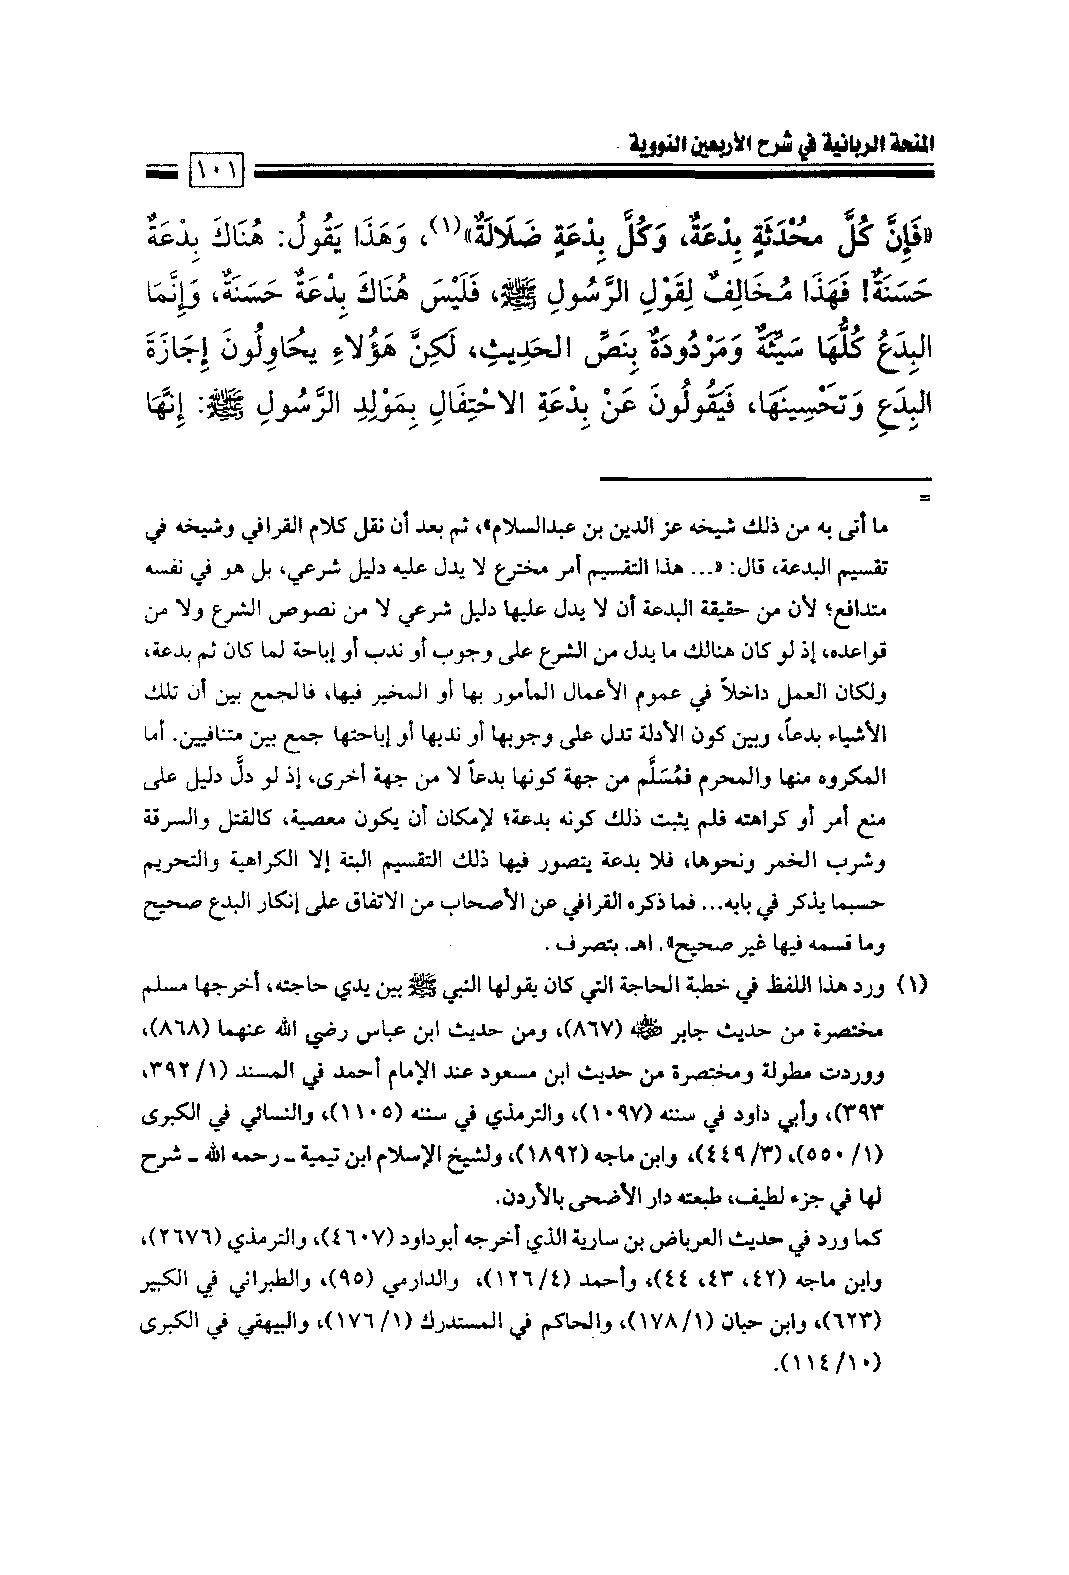 المنحة الربانية في شرح الأربعين النووية
١٠١
«فَإِنَّ كُلَّ مُحْدَثَةٍ بِدْعَةٌ، وَكُلَّ بِدْعَةٍ ضَلَالَةٌ»(١)، وَهَذَا يَقُولُ: هُنَاكَ بِدْعَةٌ
حَسَنَةٌ! فَهَذَا مُخَالِفٌ لِقَوْلِ الرَّسُولِ ﷺ، فَلَيْسَ هُنَاكَ بِدْعَةٌ حَسَنَةٌ، وَإِنَّمَا
البِدَعُ كُلُّهَا سَيِّئَةٌ وَمَرْدُودَةٌ بِنَصِّ الحَدِيثِ، لَكِنَّ هَؤُلَاءِ يُحَاوِلُونَ إِجَازَةَ
البِدَعِ وَتَحْسِينَهَا، فَيَقُولُونَ عَنْ بِدْعَةِ الاحْتِفَالِ بِمَوْلِدِ الرَّسُولِ ﷺ: إِنَّهَا
=
ما أتى به من ذلك شيخه عز الدين بن عبدالسلام»، ثم بعد أن نقل كلام القرافي وشيخه في
تقسيم البدعة، قال: «... هذا التقسيم أمر مخترع لا يدل عليه دليل شرعي، بل هو في نفسه
متدافع؛ لأن من حقيقة البدعة أن لا يدل عليها دليل شرعي لا من نصوص الشرع ولا من
قواعده، إذ لو كان هنالك ما يدل من الشرع على وجوب أو ندب أو إباحة لما كان ثم بدعة،
ولكان العمل داخلاً في عموم الأعمال المأمور بها أو المخير فيها، فالجمع بين أن تلك
الأشياء بدعاً، وبين كون الأدلة تدل على وجوبها أو ندبها أو إباحتها جمع بين متنافيين. أما
المكروه منها والمحرم فمُسَلَّم من جهة كونها بدعاً لا من جهة أخرى، إذ لو دلَّ دليل على
منع أمر أو كراهته فلم يثبت ذلك كونه بدعة؛ لإمكان أن يكون معصية، كالقتل والسرقة
وشرب الخمر ونحوها، فلا بدعة يتصور فيها ذلك التقسيم البتة إلا الكراهية والتحريم
حسبما يذكر في بابه... فما ذكره القرافي عن الأصحاب من الاتفاق على إنكار البدع صحيح
وما قسمه فيها غير صحيح». اهـ. بتصرف.
(١) ورد هذا اللفظ في خطبة الحاجة التي كان يقولها النبي ﷺ بين يدي حاجته، أخرجها مسلم
مختصرة من حديث جابر رضي الله عنه (٨٦٧)، ومن حديث ابن عباس رضي الله عنهما (٨٦٨)،
ووردت مطولة ومختصرة من حديث ابن مسعود عند الإمام أحمد في المسند (١/ ٣٩٢،
٣٩٣)، وأبي داود في سننه (١٠٩٧)، والترمذي في سننه (١١٠٥)، والنسائي في الكبرى
(١/ ٥٥٠)، (٣/ ٤٤٩)، وابن ماجه (١٨٩٢)، ولشيخ الإسلام ابن تيمية ـ رحمه الله ـ شرح
لها في جزء لطيف، طبعته دار الأضحى بالأردن.
كما ورد في حديث العرباض بن سارية الذي أخرجه أبوداود (٤٦٠٧)، والترمذي (٢٦٧٦)،
وابن ماجه (٤٢، ٤٣، ٤٤)، وأحمد (٤/ ١٢٦)، والدارمي (٩٥)، والطبراني في الكبير
(٦٢٣)، وابن حبان (١/ ١٧٨)، والحاكم في المستدرك (١/ ١٧٦)، والبيهقي في الكبرى
(١٠/ ١١٤).